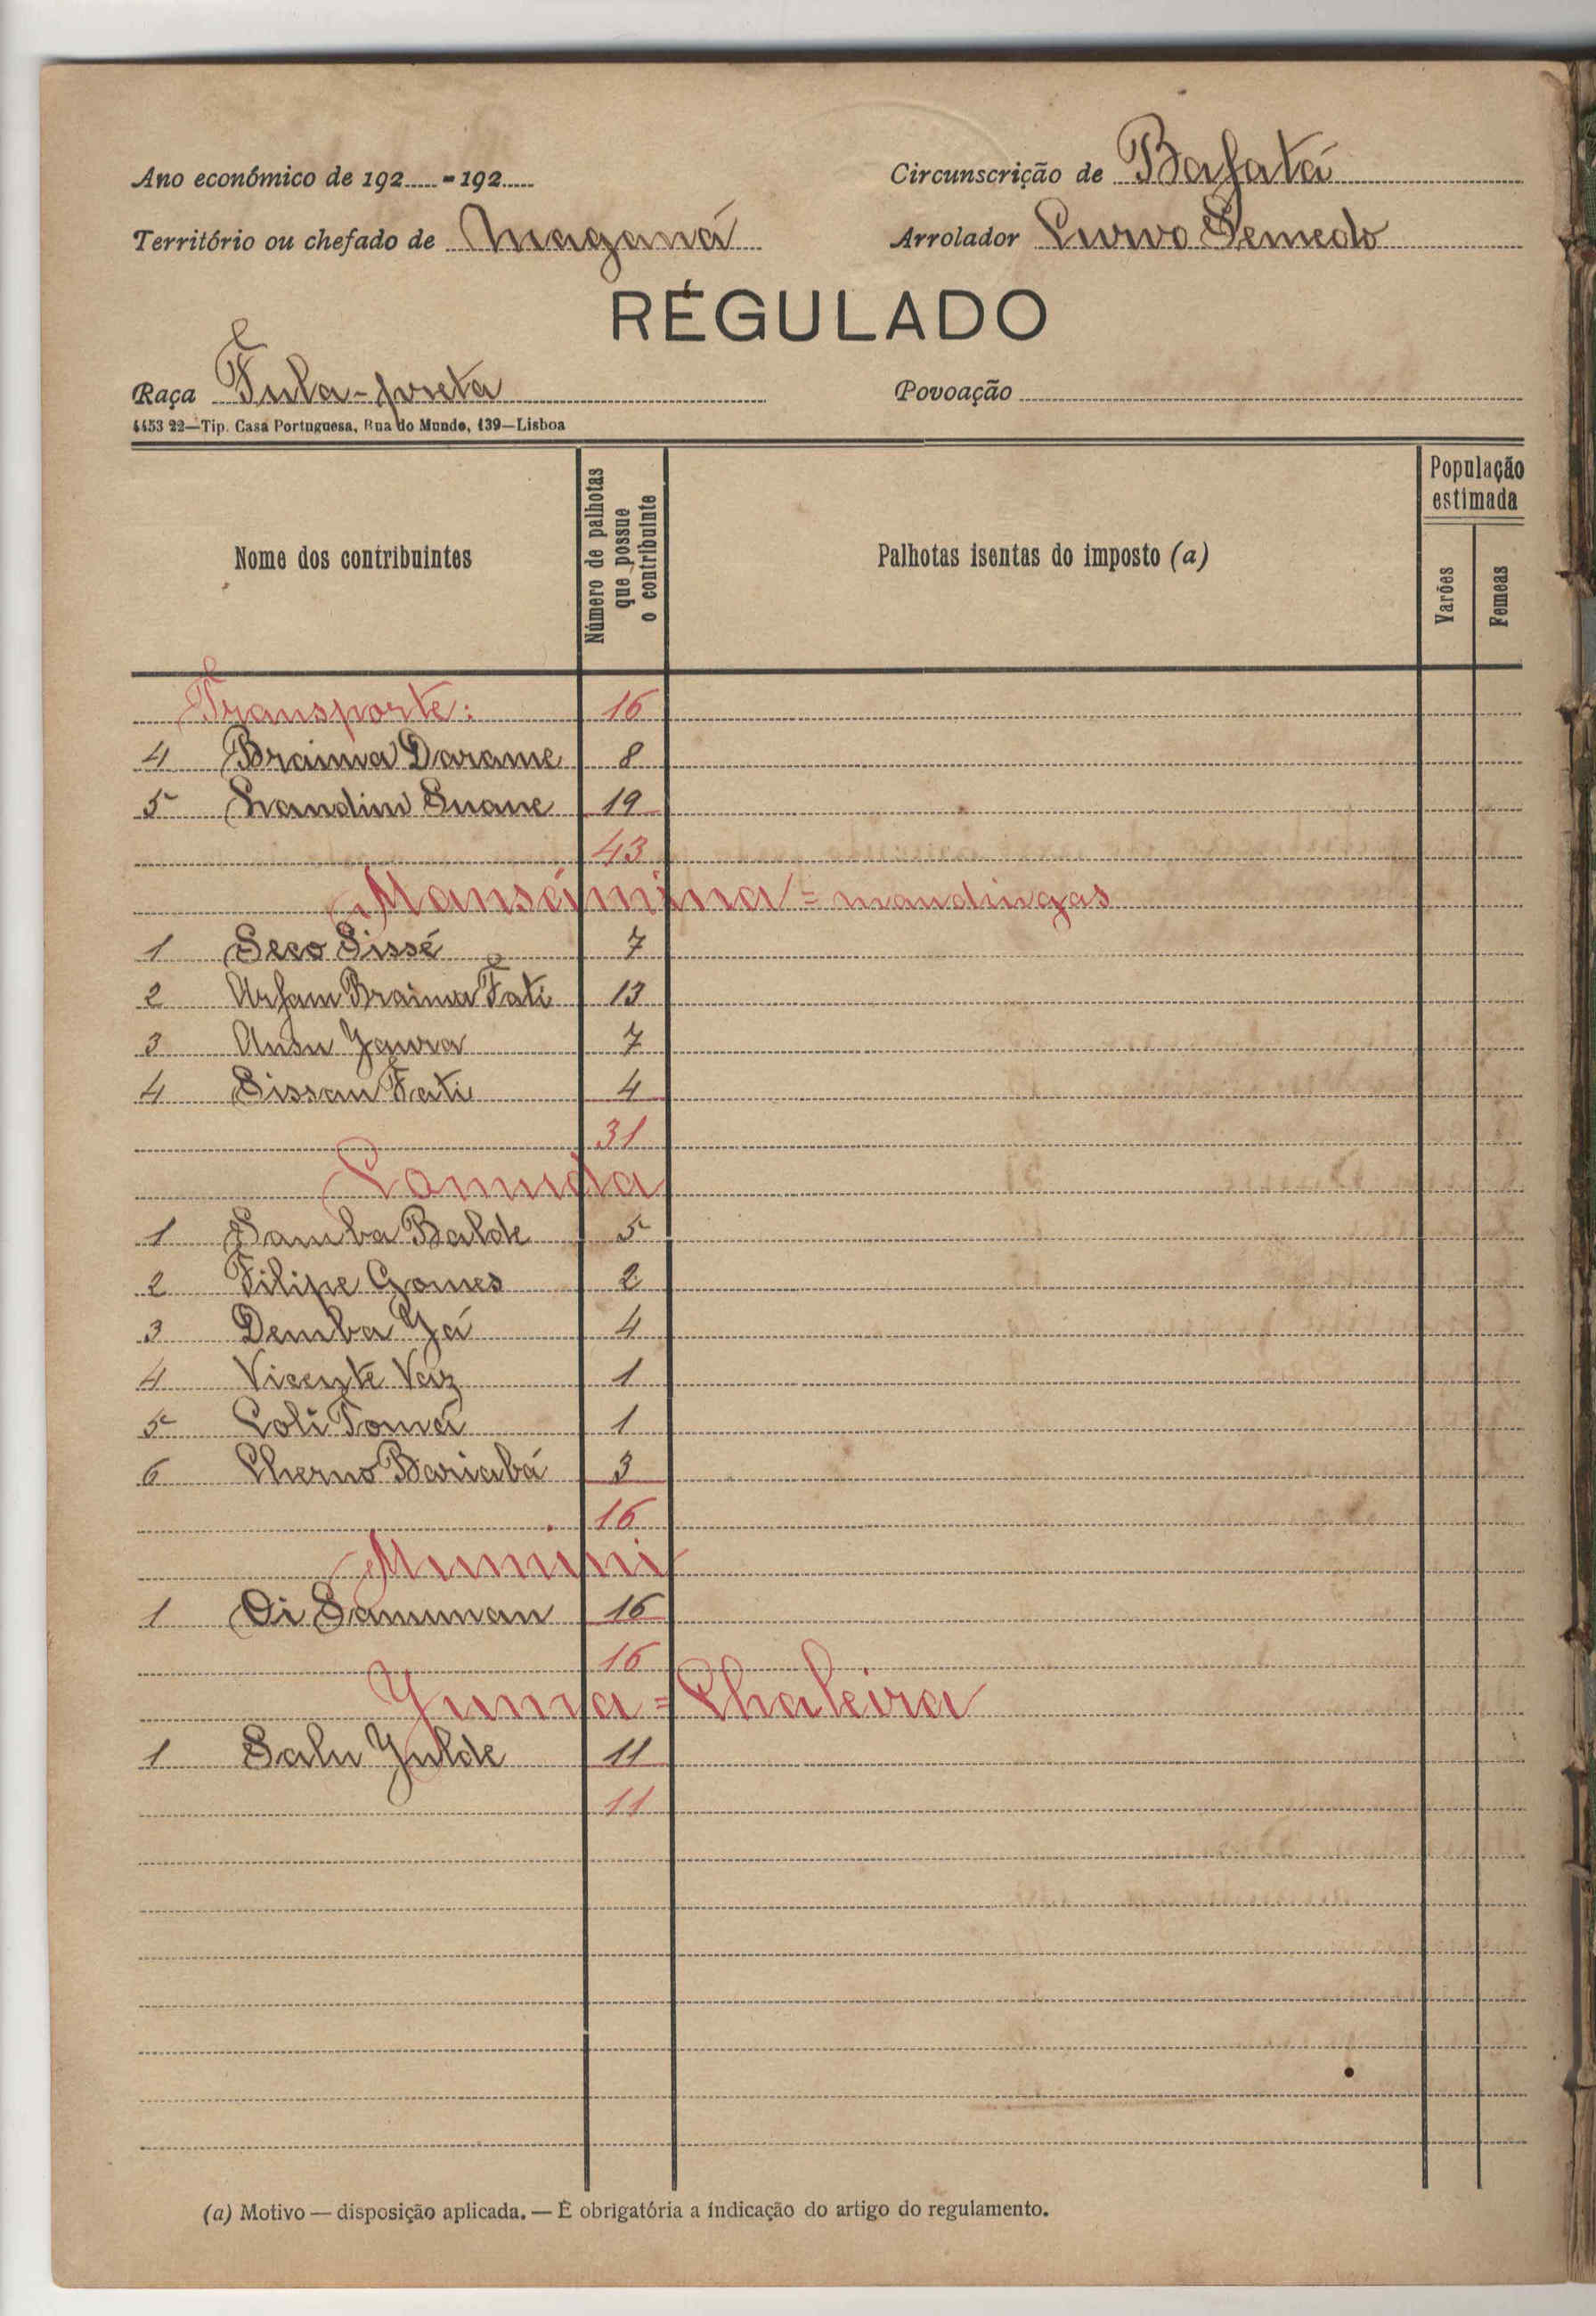 Ano económico de 192.....-192.....
Circunscrição de Bafatá
Território ou chefado de Maganá
Arrolador Curvo Semedo
RÉGULADO
Raça Fula-preta
Povoação
4453 22—Tip. Casa Portuguesa, Rua do Mundo, 139—Lisboa
Nome dos contribuintes
Número de palhotas que possue o contribuinte
Palhotas isentas do imposto (a)
População estimada
Varões
Femeas
Transporte: 16
4 Braima Darame 8
5 Landim Suane 19
43
Mansámina = mandingas
1 Seco Sissé 7
2 Arfam Braima Fati 13
3 Ansu Jawra 7
4 Sissau Fati 4
31
Comuda
1 Samba Balde 5
2 Filipe Gomes 2
3 Demba Já 4
4 Vicente Vaz 1
5 Coli Tomá 1
6 Cherno Bariabá 3
16
Mumini
1 Di Samuman 16
16
Yuma = Chaleira
1 Salu Julde 11
11
(a) Motivo — disposição aplicada. — É obrigatória a indicação do artigo do regulamento.